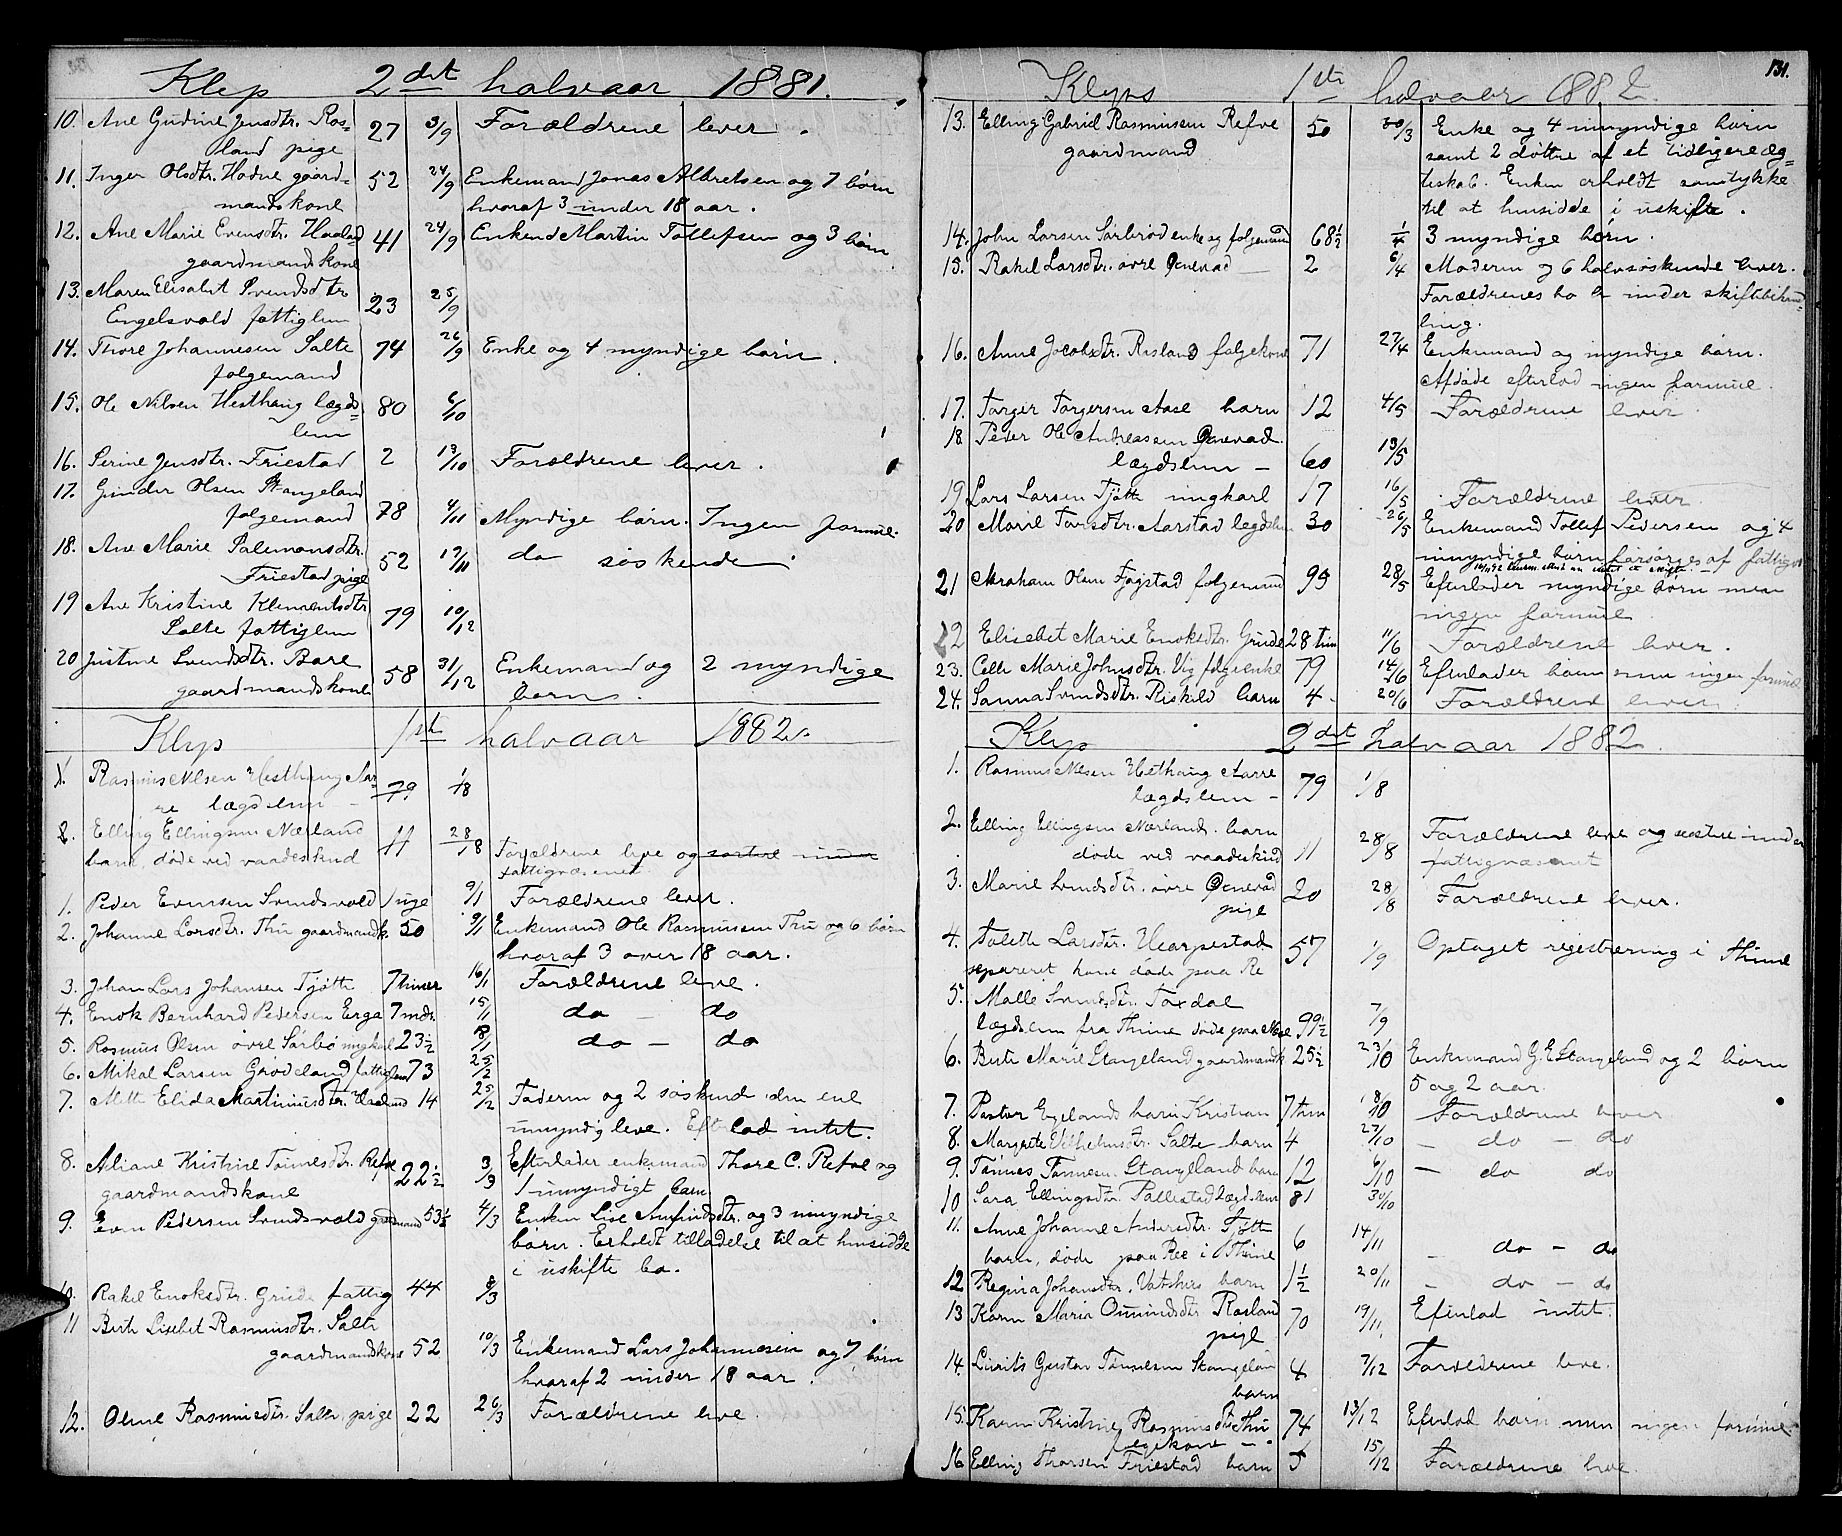 Klep 2det halvaar 1881.
10. Ane Gudine Jensdtr. Ros=
land pige 27 3/9 Forældrene lever.
11. Inger Olsdtr. Hodne gaard=
mandskone 52 24/9 Enkemand Jonas Albretsen og 7 børn
hvoraf 3 under 18 aar.
12. Ane Marie Evensdtr. Haaland
gaardmandskone 41 24/9 Enkem Martin Tollefsen og 3 børn
13. Maren Elisabet Svendsdtr.
Engelsvold fattiglem 23 25/9
14. Thore Johannesen Salte 74 26/9 Enke og 4 myndige børn.
folgemand
15. Ole Nilsen Hesthaug lægds=
lem 80 6/10
16. Serine Jensdtr. Friestad 2 13/10 Forældrene lever.
17. Gunder Olsen Stangeland
folgemand 78 4/11 Myndige børn. Ingen formue.
18. Ane Marie Salemonsdtr.
Friestad pige 52 17/11 do søskende
19 Ane Kristine Klementsdtr
Salte fattiglem 79 10/12
20 Justine Svendsdtr. Bore
gaardmandskone 58 31/12 Enkemand og 2 myndige
børn.
Klep 1ste halvaar 1882.
1. Rasmus Nilsen Hesthaug Aar=
re lægdslem 79 1/8
2. Elling Ellingsen Nærland
barn, døde ved vaadeskud 11 28/8 Forældrene leve og sortere under
fattigvæsenet
1. Peder Evensen Svendsvold 1 uge 9/1 Forældrene lever.
2. Johanne Larsdtr. Thu gaardmandsk. 50 9/1 Enkemand Ole Rasmussen Thu og 6 børn
hvoraf 3 over 18 aar.
3. Johan Lars Johansen Tjøtte 7 timer 16/1 Forældrene leve.
4. Enok Bernhard Pedersen Erga 7 mdr. 15/1 do — do
5. Rasmus Olsen øvre Sørbø ungkarl 23½ 18/1 do — do
6. Mikal Larsen Grødeland fattiglem 73 25/2
7. Mette Elida Martinusdtr. Haaland 14 25/2 Faderen og 2 søskende, den ene
umyndig leve. Efterlod intet.
8. Aliane Kristine Tønnesdtr. Refve 22½ 3/3 Efterlader enkemand Thore C. Refve og
gaardmandskone 1 umyndigt barn
9. Even Pedersen Svendsvold gaardmand 53½ 4/3 Enken Lise Amundsdtr. og 3 umyndige
børn. Erholdt tilladelse til at hensidde
i uskifte bo.
10. Rakel Enoksdtr. Grude fattig 44 8/3
11 Berte Lisebet Rasmusdtr. Salte
gaardmandskone 52 10/3 Enkemand Lars Johannesen og 7 børn
hvoraf 2 under 18 aar.
12. Oline Rasmusdtr. Salte, pige 22 26/3 Forældrene leve.
131.
Kleps 1ste halvaar 1882.
13. Elling Gabriel Rasmussen Refve 50 30/3 Enke og 4 umyndige børn
gaardmand samt 2 døttre af et tidligere æg=
teskab. Enken erholdt samtykke
til at hensidde i uskifte.
14. John Larsen Sørbrød enke og folgemand 68½ 1/4 3 myndige børn.
15. Rakel Larsdtr. øvre Ønevad — 2 6/4 Moderen og 6 halvsøskende lever.
Forældrenes bo er under skiftebehand=
ling.
16. Anne Jacobsdtr. Rosland folgekone 71 27/4 Enkemand og myndige børn.
Afdøde efterlod ingen formue.
17. Torger Torgersen Aase barn 12 4/5 Forældrene lever.
18. Peder Ole Andreassen Ønevad
lægdslem — 60 13/5
19 Lars Larsen Tjøtte ungkarl 17 16/5 Forældrene lever
20 Marie Tørresdtr. Aarstad lægdslem 30 26/5 Enkemand Tollef Pedersen og 4
umyndige børn forsørges af fattigv.
21 Abraham Olsen Fjogstad folgemand 95 28/5 Efterlader myndige børn men
ingen formue
22 Elisebet Marie Enoksdtr. Grude 28 tim 11/6 Forældrene lever.
23. Celle Marie Johnsdtr. Vig folgeenke 79 14/6 Efterlader børn men ingen formue
24. Sanna Svendsdtr. Riskild barn 4 20/6 Forældrene lever
Klep 2det halvaar 1882.
1. Rasmus Nilsen Hesthaug Aarre
lægdslem — 79 1/8
2. Elling Ellingsen Nærland. barn
døde ved vaadeskud 11 28/8 Forældrene leve og sortere under
fattigvæsenet
3. Marie Svendsdtr. øvre Ønevad
pige 20 28/8 Forældrene lever.
4. Tolette Larsdtr. Hearpestad
separeret kone døde paa Re 57 1/9 Optaget registrering i Thime
5. Malle Svendsdtr. Taxdal
lægdslem fra Thime døde paa 99½ 7/9
6. Berte Marie Stangeland gaardmandsk 25½ 23/10 Enkemand G. E. Stangeland og 2 børn
5 og 2 aar.
7. Pastor Egelands barn Kristian 7 tim 18/10 Forældrene lever
8. Margrete Vilhelmsdtr. Salte barn 4 27/10 — do — do
9. Tønnes Tønnesen Stangeland barn 12 6/10 — do do
10 Sara Ellingsdtr. Pallestad lægdslem 81 30/10
11. Anne Johanne Andersdtr. Tjøtte
barn, døde paa Ree i Thime 6 14/11 — do — do
12 Regina Johansdtr. Vatshus barn 1½ 20/11 — do — do
13 Karen Maria Omundsdtr Rosland
pige 70 19/11 Efterlod intet.
14. Lauits Gustav Tønnesen Stangeland
barn 4 7/12 Forældrene leve.
15. Karen Kristine Rasmusdtr. Thu
folgekone — 74 13/12 Efterlod børn men ingen formue
16 Elling Thorsen Friestad barn 5 15/12 Forældrene leve.